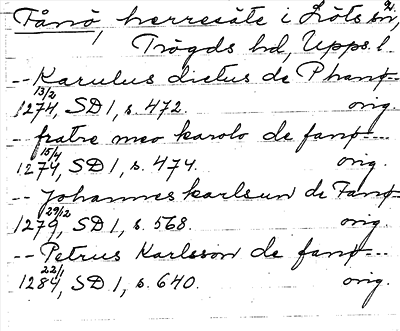 Fånö, herresäte i Löts sn,
Trögds hd, Upps. l.
-- Karulus dictus de Phanø-
13/2 1274, SD 1, s. 472. orig.
-- fratre meo karolo de fanø---
15/4 1274, SD 1, s. 474. orig.
-- Johannes karlsun de Fanø-
29/12 1279, SD 1, s. 568. orig.
-- Petrus Karlsson de fanø---
22/1 1284, SD 1, s. 640. orig.